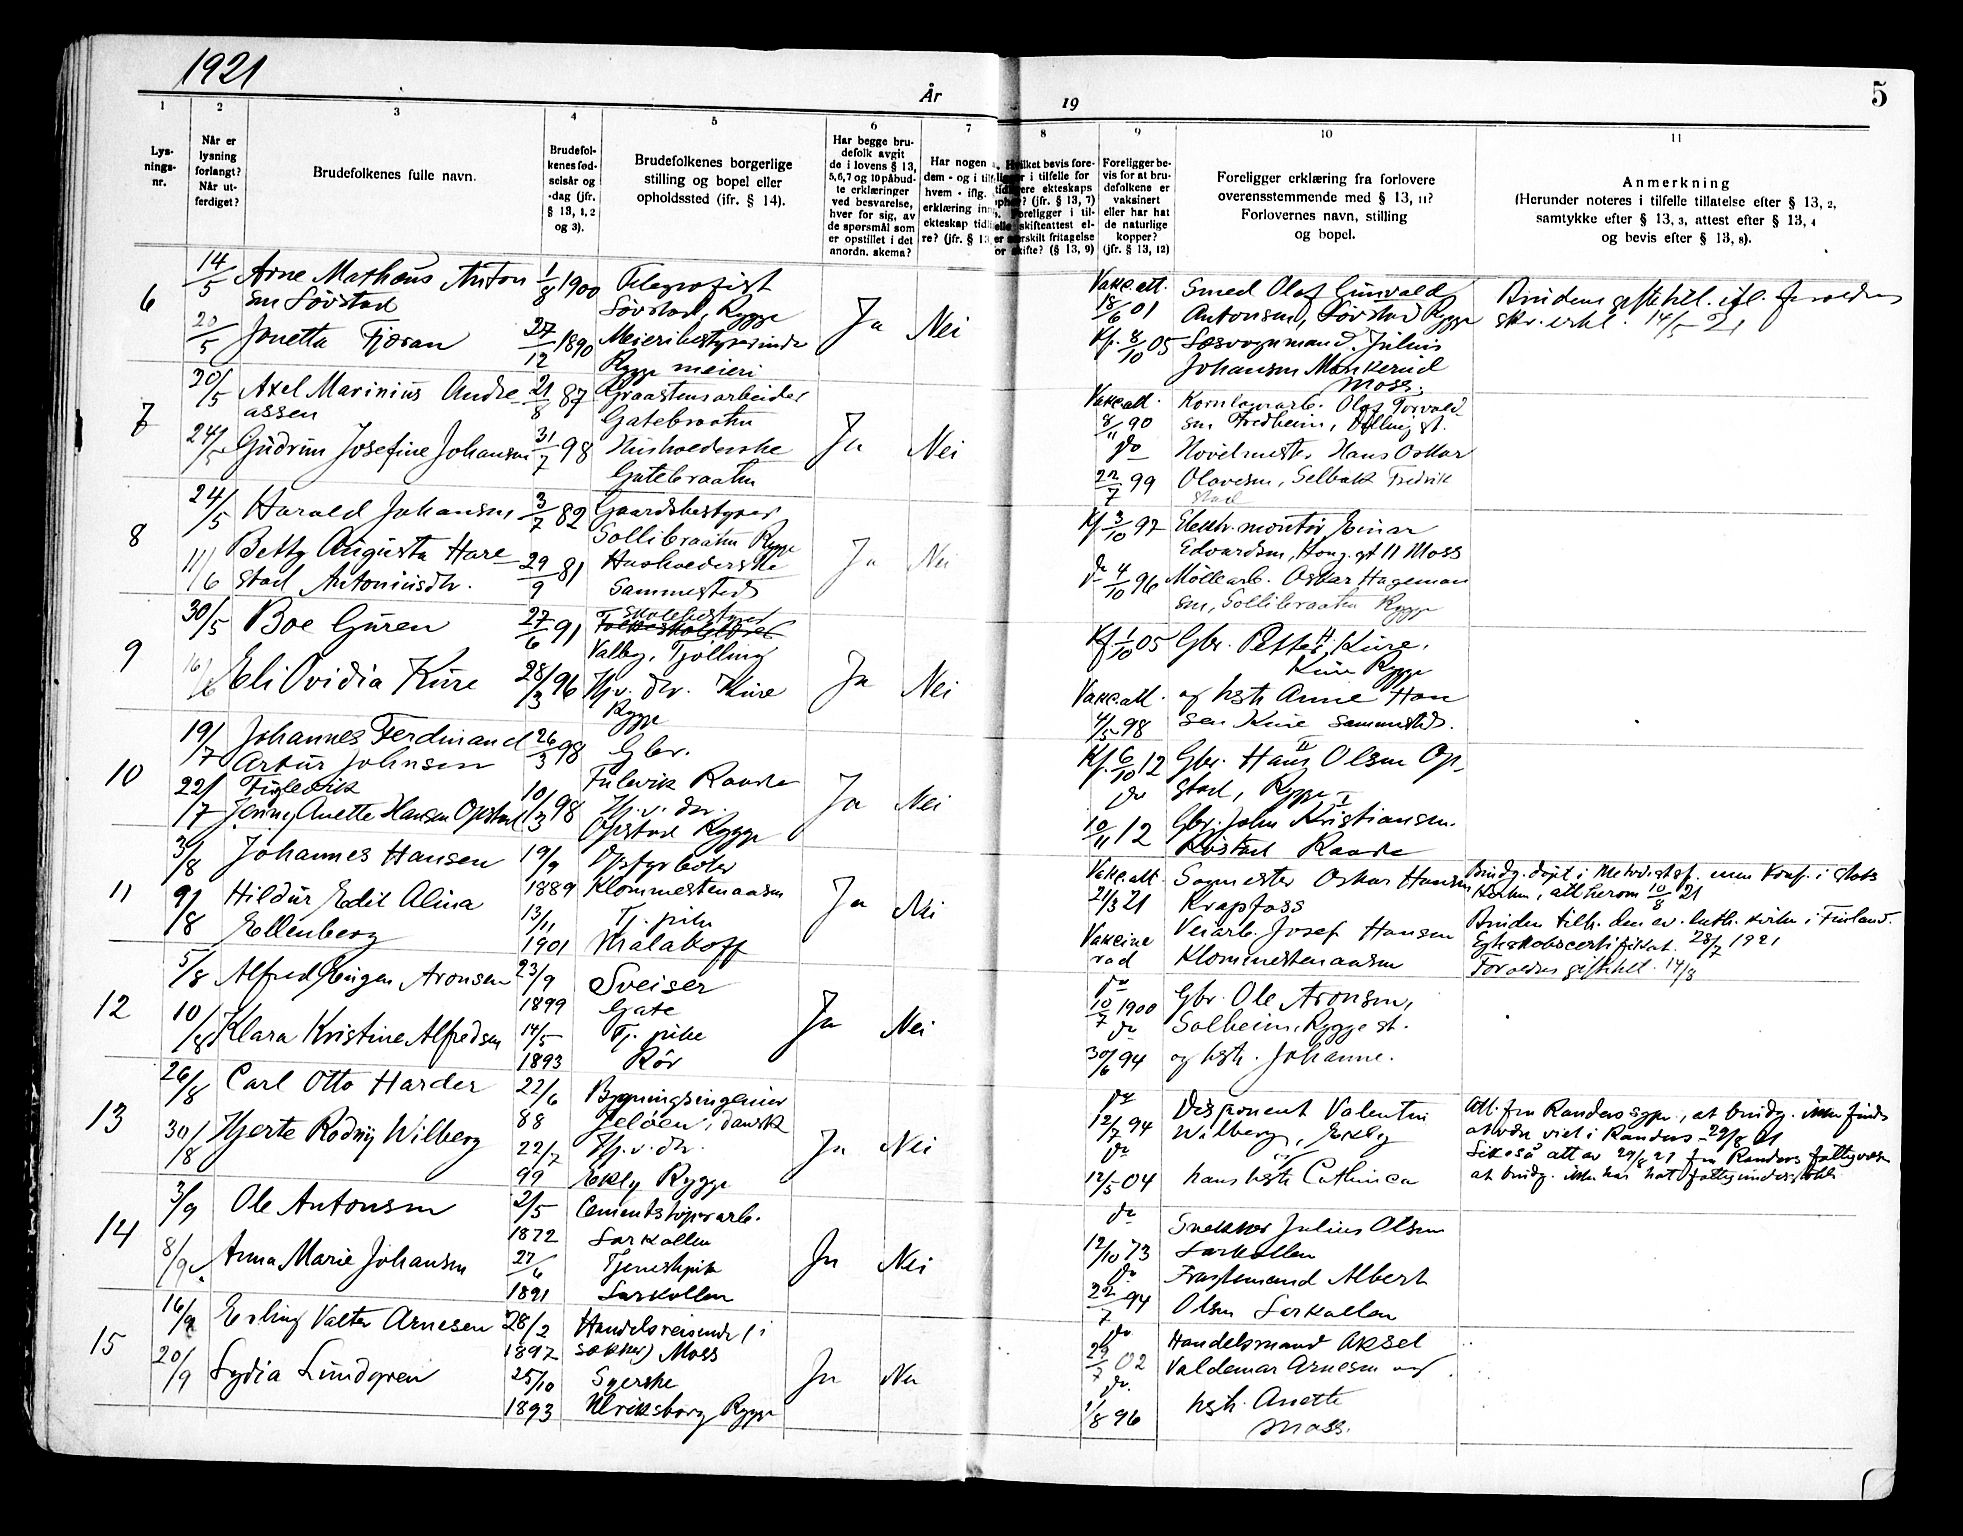 1921
År
19
5
1
2
3
4
5
6
7
8
9
10
11
Lys-
nings-
nr.
Når er
lysning
forlangt?
Når ut-
ferdiget?
Brudefolkenes fulle navn.
Brudefol-
kenes fød-
selsår og
-dag (jfr.
§ 13, 1, 2
og 3).
Brudefolkenes borgerlige
stilling og bopel eller
opholdssted (ifr. § 14).
Har begge bru-
defolk avgit
de i lovens § 13,
5, 6, 7 og 10 påbud-
te erklæringer
ved besvarelse,
hver for sig, av
de spørsmål som
er opstillet i det
anordn. skema?
Har nogen
dem - og i
hvem - iflg.
erklæring
ekteskap
re? (jfr. § 13,
Foreligger be-
vis for at bru-
defolkene er
vaksinert
eller har hat
de naturlige
kopper?
(jfr. § 13, 12)
Foreligger erklæring fra forlovere
overensstemmende med § 13, 11?
Forlovernes navn, stilling
og bopel.
Anmerkning
(Herunder noteres i tilfelle tillatelse efter § 13, 2,
samtykke efter § 13, 3, attest efter § 13, 4
og bevis efter § 13, 8).
6
14/5
Arne Matheus Anton
sen Sørstad
1/8 1900
Telegrafist
Sørstad, Rygge
Ja
Nei
Vakc.att.
18/6 01
Smed Olaf Gunvald
Antonsen, Sørstad Rygge
Jonetta Fjøran
27/12 1890
Meieribestyrerinde
Rygge meieri
Kf. 8/10 05
Julius
Johansen
Moss.
7
20/5
Axel Marinius Andre-
assen
21/8 87
Graastensarbeider
Gatebraaten
Ja
Nei
Vakc.att.
8/11 90
24/5
Gudrun Josefine Johansen
31/7 98
Husholderske
Gatebraaten
do
22/7 99
Høvelmester Hans Oskar
Olavesen, Selbakk Fredrik
stad
8
24/5
Harald Johansen
3/7 82
Gaardsbestyrer
Sollibraaten Rygge
Ja
Nei
Kf 3/10 97
Elektr. montør Einar
Edvardsen, Moss
11/6
Betty Augusta Hare-
stad Antoniusdtr.
29/9 81
Husholderske
Sammesteds
do 4/10 96
Møllearb. Oskar Hageman
sen, Sollibraaten Rygge
9
30/5
Boe Guren
27/6 91
Skolebestyrer
Valby, Tjølling
Ja
Nei
Kf 1/10 05
Gbr. Petter H. Kure,
Kure Rygge
16/6
Eli Ovidia Kure
28/3 96
Hj.v. dtr. Kure
Rygge
Vakc.att.
4/5 98
og hstr Anne Han
sen Kure sammesteds.
10
19/7
Johannes Ferdinand
Artur Johnsen
26/3 98
Gbr.
Fulevik Raade
Ja
Nei
Kf. 6/10 12
Gbr. Hans Olsen Op-
stad, Rygge
22/7
Jenny Anette Hansen Opstad
10/3 98
Hj.v. dtr.
Opstad Rygge
do
10/11 12
Gbr. John Kristiansen
Raade
11
3/8
Johannes Hansen
19/9
1889
Klommestenaasen
Ja
Nei
Vakc.att.
21/3 21
Sagmester Oskar Hansen
Krapfoss
9/8
Hildur Edit Alina
Ellenberg
13/11
1901
Tj. pike
Malakoff
Vakcine
rad
Veiarb. Josef Hansen
Klommestenaasen
28/7 1921
12
5/8
Alfred Eugen Aronsen
23/9
1899
Sveiser
Gate
Ja
Nei
do
10/7 1900
Gbr. Ole Aronsen,
Solheim, Rygge st.
10/8
Klara Kristine Alfredsen
14/5
1893
Tj. pike
Rør
do
30/6 94
og hstr. Johanne.
13
26/8
Carl Otto Harder
22/6
88
Bygningsingeniør
Jeløen, dansk
Ja
Nei
do
12/7 94
Disponent Valentin
Wilberg, Ekly
30/8
Hjerte Rodny Wilberg
22/7
99
Hj.v. dtr.
Ekly Rygge
do
12/5 04
hans hstr Cathinca
Att. fra Randers sogn, at brudg. ikke findes
at være viet i Randers 29/8 21
Likeså att av 29/8 21 fra Randers fattigvæsen
at brudg. ikke har hat fattigunderstøttelse
14
3/9
Ole Antonsen
2/5
1872
Cementstøperarb.
Larkollen
Ja
Nei
do
12/10 73
Snekker Julius Olsen
Larkollen
8/9
Anna Marie Johansen
27/6
1891
Tjenestpike
Larkollen
do
22/7 94
Fragtemand Albert
Olsen Larkollen
15
16/9
Erling Valter Arnesen
28/2
1897
Handelsreisende (i
sækker) Moss
Ja
Nei
do
02
Handelsmand Aksel
Valdemar Arnesen og
20/9
Lydia Lundgren
25/10
1893
Syerske
Ulriksborg Rygge
do.
1/8 96
hstr. Anette
Moss.